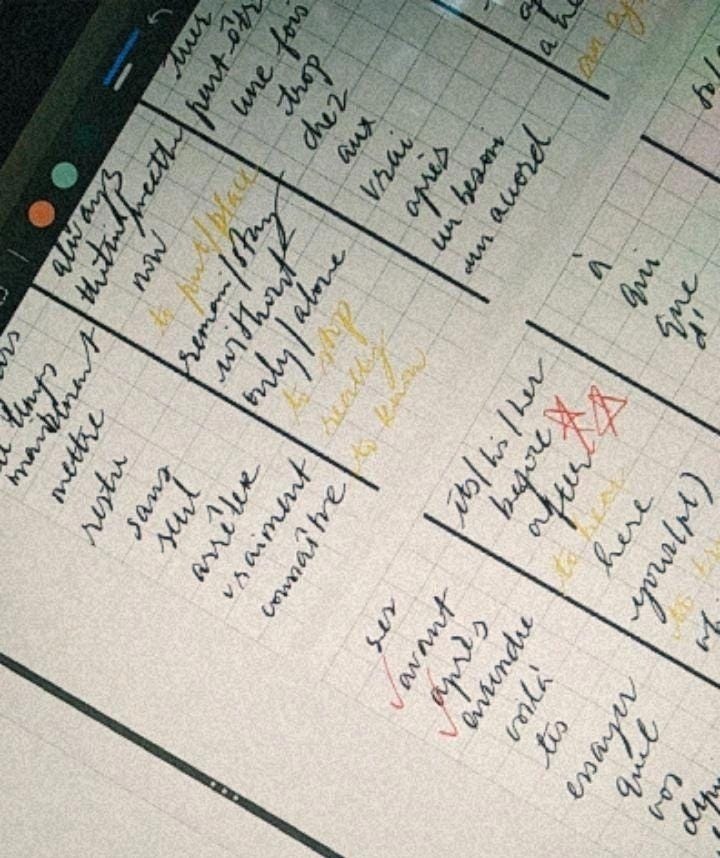 tuer
peut être
une fois
trop
chez
aux
vrai
après
un besoin
un accord
always
now
to put/place
remain/stay
without
only/alone
to stop
really
to know
temps
maintenant
mettre
reste
sans
seul
arrêter
vraiment
connaître
à
qui
que
d'
its/his/her
before
after
to hear
here
your(pl)
ses
avant
après
voilà
tes
essayer
quel
vos